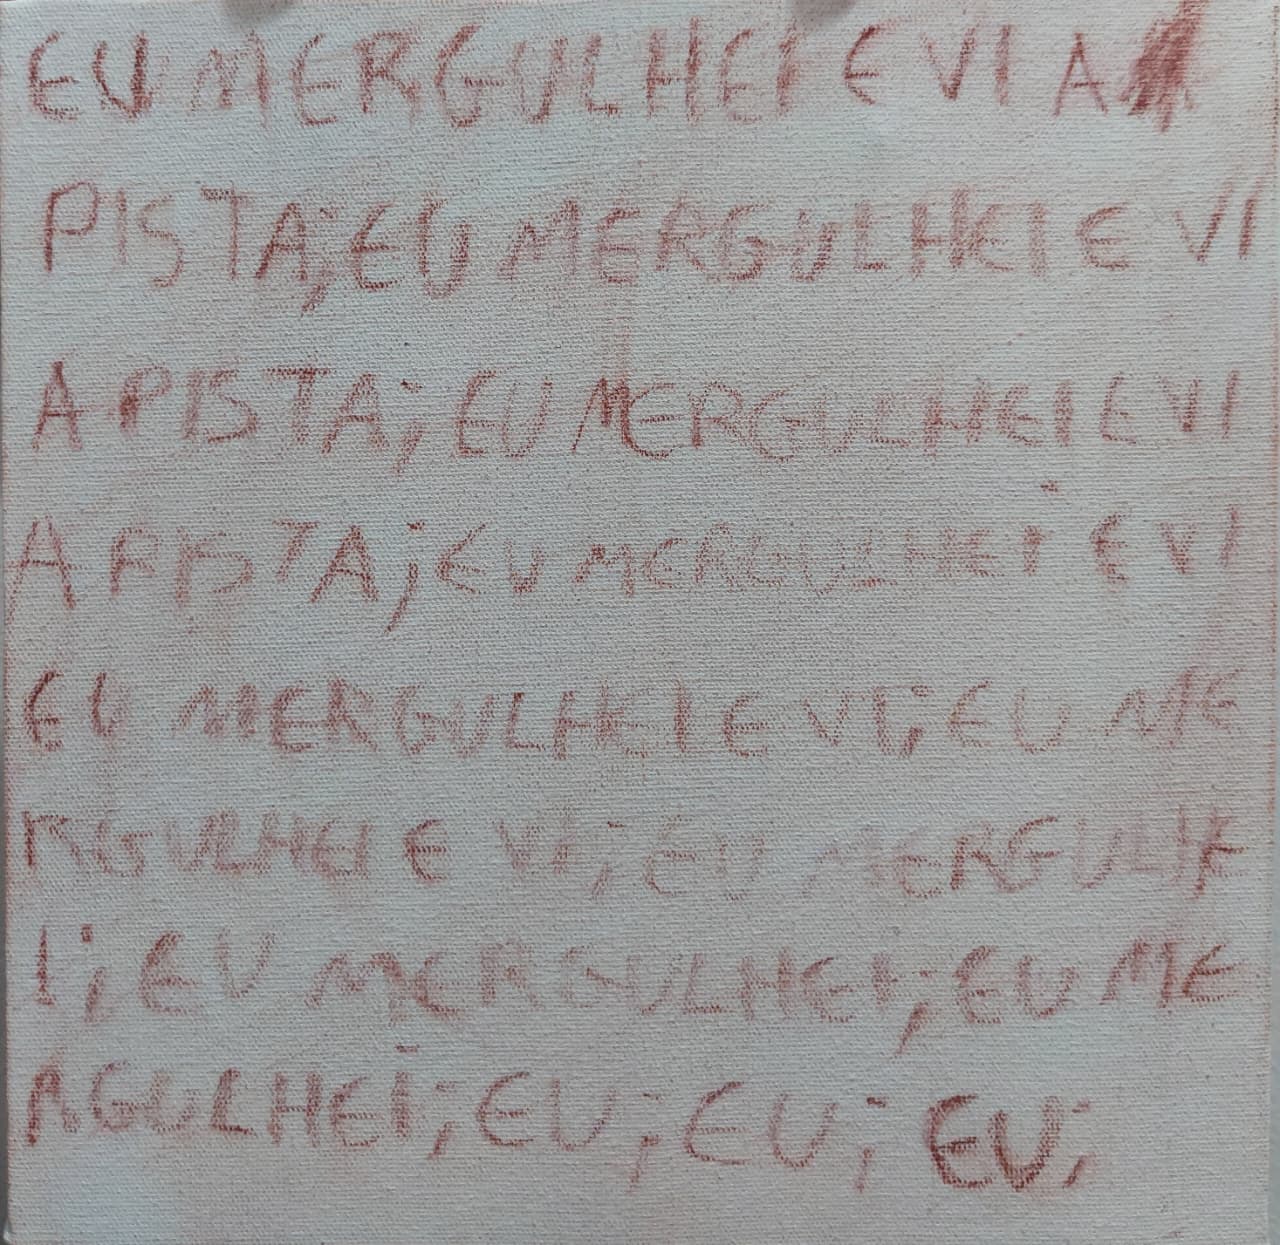 EU MERGULHEI E VI A
PISTA; EU MERGULHEI E VI
A PISTA; EU MERGULHEI E VI
A PISTA; EU MERGULHEI E VI
EU MERGULHEI E VI; EU ME
RGULHEI E VI; EU MERGULHE
I; EU MERGULHEI; EU ME
RGULHEI; EU; EU; EU;